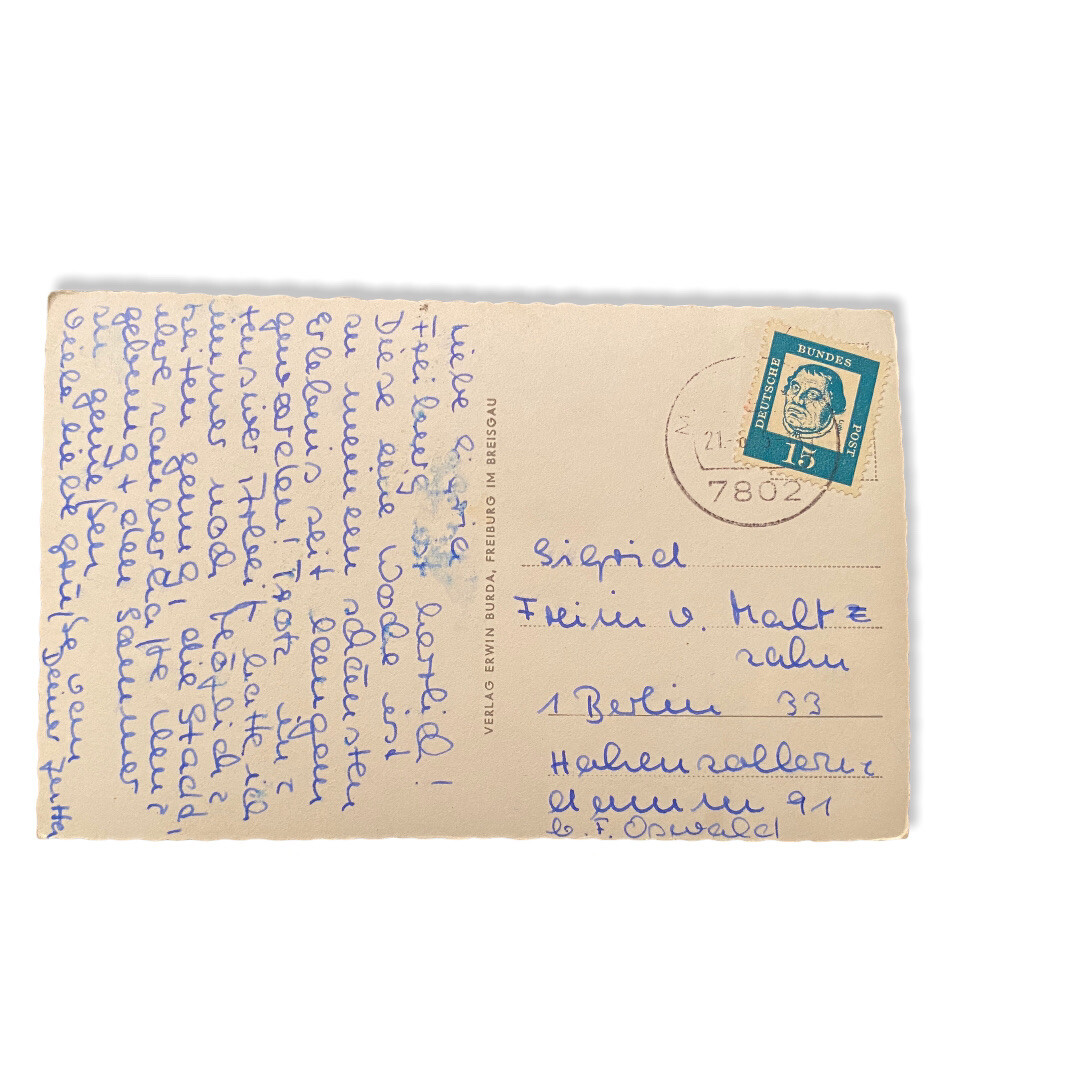 Liebe Sigrid!
Freiburg ist herrlich!
Diese eine Woche ist
zu meinem schönsten
Erlebnis seit langem
geworden! Trotz in-
tensiver Arbeit hatte ich
immer noch Möglich-
keiten genug, die Stadt,
ihre zauberhafte Um-
gebung + den Sommer
zu genießen.
Viele liebe Grüße von
Deiner Jutta
VERLAG ERWIN BURDA, FREIBURG IM BREISGAU
DEUTSCHE BUNDES POST
15
21.
7802
Sigrid
Freiin v. Maltz=
zahn
1 Berlin 33
Hohenzollern-
damm 91
b. F. Oswald